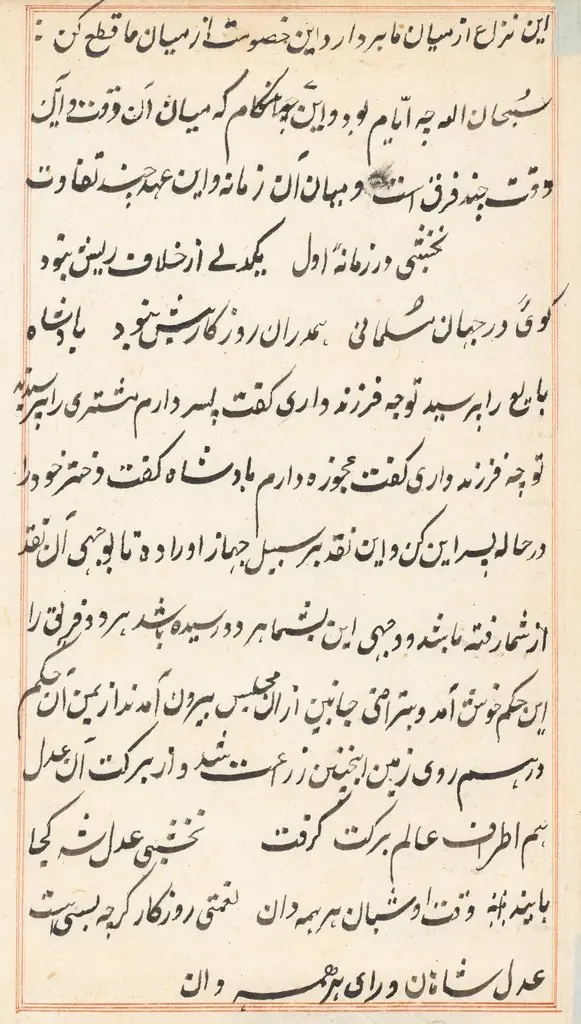 این نزاع از میان ما بردار و این خصومت از میان ما قطع کن
سبحان الله چه ایّام بود و این چه هنکام که میان آن وقت و این
وقت چند فرق است و میان آن زمانه و این عهد چند تفاوت
نخشبی در زمانهٔ اول یکدلے از خلاف ریش نبود
کوئ در جهان مسلمانی همدران روزکار بیش نبود پادشاه
بایع را پرسید تو چه فرزند داری کفت پسر دارم مشتری را پرسید
تو چه فرزند داری کفت عجوزه دارم پادشاه کفت دختر خود را
در حاله پسر این کن و این نقد بر سبیل جهاز او را ده تا بوجهی آن نقد
از شما رفته باشد و وجهی این بشما هر دو رسیده باشد هر دو فریق را
این حکم خوش آمد و بتراضی جانبین از ان مجلس بیرون آمدند از یمن آن حکم
در همه روی زمین اینچنین زراعت شد و از برکت آن عدل
هم اطراف عالم برکت کرفت نخشبی عدل شه کجا
یابند وقت او شبان هر همه دان نعمتی روزکار کرچه بسی است
عدل شاهان ورای هر همه دان